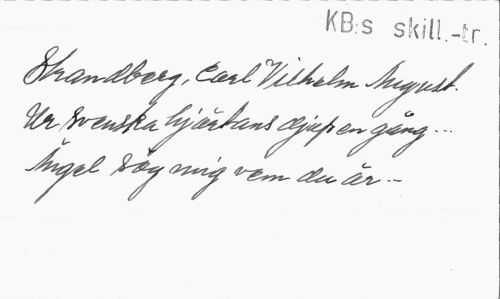 KB:s skill.-tr.
Strandberg, Carl Vilhelm August.
Ur svenska hjärtans djup en gång...
Ängel säg mig vem du är –